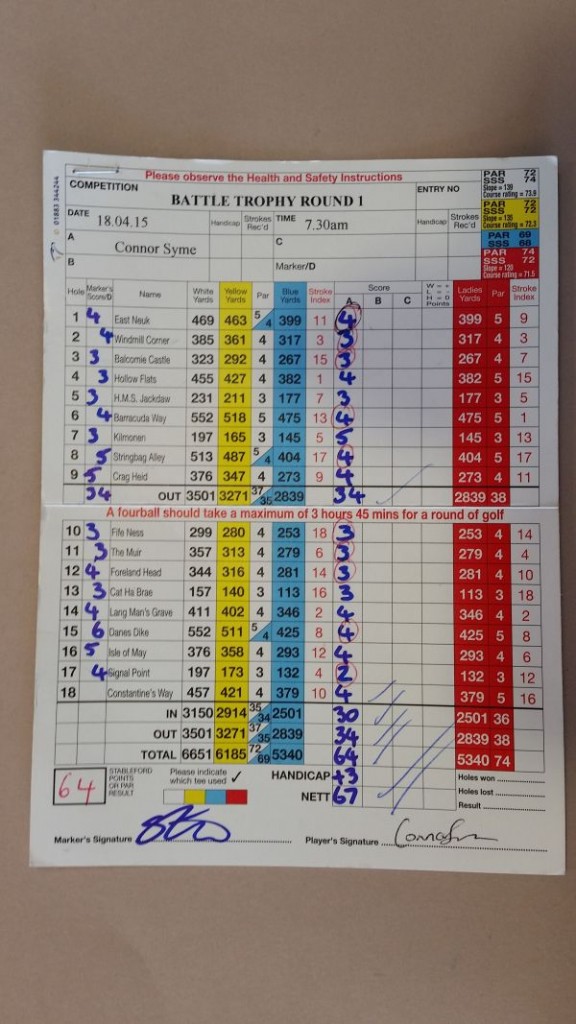 © 01883 344244
Please observe the Health and Safety Instructions
COMPETITION
BATTLE TROPHY ROUND 1
ENTRY NO
PAR 72
SSS 74
Slope = 139
Course rating = 73.9
PAR 72
SSS 72
Slope = 135
Course rating = 72.3
PAR 69
SSS 68
PAR 74
SSS 72
Slope = 120
Course rating = 71.5
DATE 18.04.15 Handicap Strokes Rec'd TIME 7.30am Handicap Strokes Rec'd
A Connor Syme C
B Marker/D
Hole Marker's Score/D Name White Yards Yellow Yards Par Blue Yards Stroke Index Score A B C W = + L = – H = 0 Points Ladies Yards Par Stroke Index
1 4 East Neuk 469 463 5/4 399 11 4 399 5 9
2 4 Windmill Corner 385 361 4 317 3 3 317 4 3
3 3 Balcomie Castle 323 292 4 267 15 3 267 4 7
4 3 Hollow Flats 455 427 4 382 1 4 382 5 15
5 3 H.M.S. Jackdaw 231 211 3 177 7 3 177 3 5
6 4 Barracuda Way 552 518 5 475 13 4 475 5 1
7 3 Kilmonan 197 165 3 145 5 5 145 3 13
8 5 Stringbag Alley 513 487 5/4 404 17 4 404 5 17
9 5 Crag Heid 376 347 4 273 9 4 273 4 11
34 OUT 3501 3271 37/35 2839 34 2839 38
A fourball should take a maximum of 3 hours 45 mins for a round of golf
10 3 Fife Ness 299 280 4 253 18 3 253 4 14
11 3 The Muir 357 313 4 279 6 3 279 4 4
12 4 Foreland Head 344 316 4 281 14 3 281 4 10
13 3 Cat Ha Brae 157 140 3 113 16 3 113 3 18
14 4 Lang Man's Grave 411 402 4 346 2 4 346 4 2
15 6 Danes Dike 552 511 5/4 425 8 4 425 5 8
16 5 Isle of May 376 358 4 293 12 4 293 4 6
17 4 Signal Point 197 173 3 132 4 2 132 3 12
18 Constantine's Way 457 421 4 379 10 4 379 5 16
IN 3150 2914 35/34 2501 30 2501 36
OUT 3501 3271 37/35 2839 34 2839 38
TOTAL 6651 6185 72/69 5340 64 5340 74
64 STABLEFORD POINTS OR PAR RESULT Please indicate which tee used ✓ HANDICAP +3 Holes won
NETT 67 Holes lost
Result
Marker's Signature Player's Signature